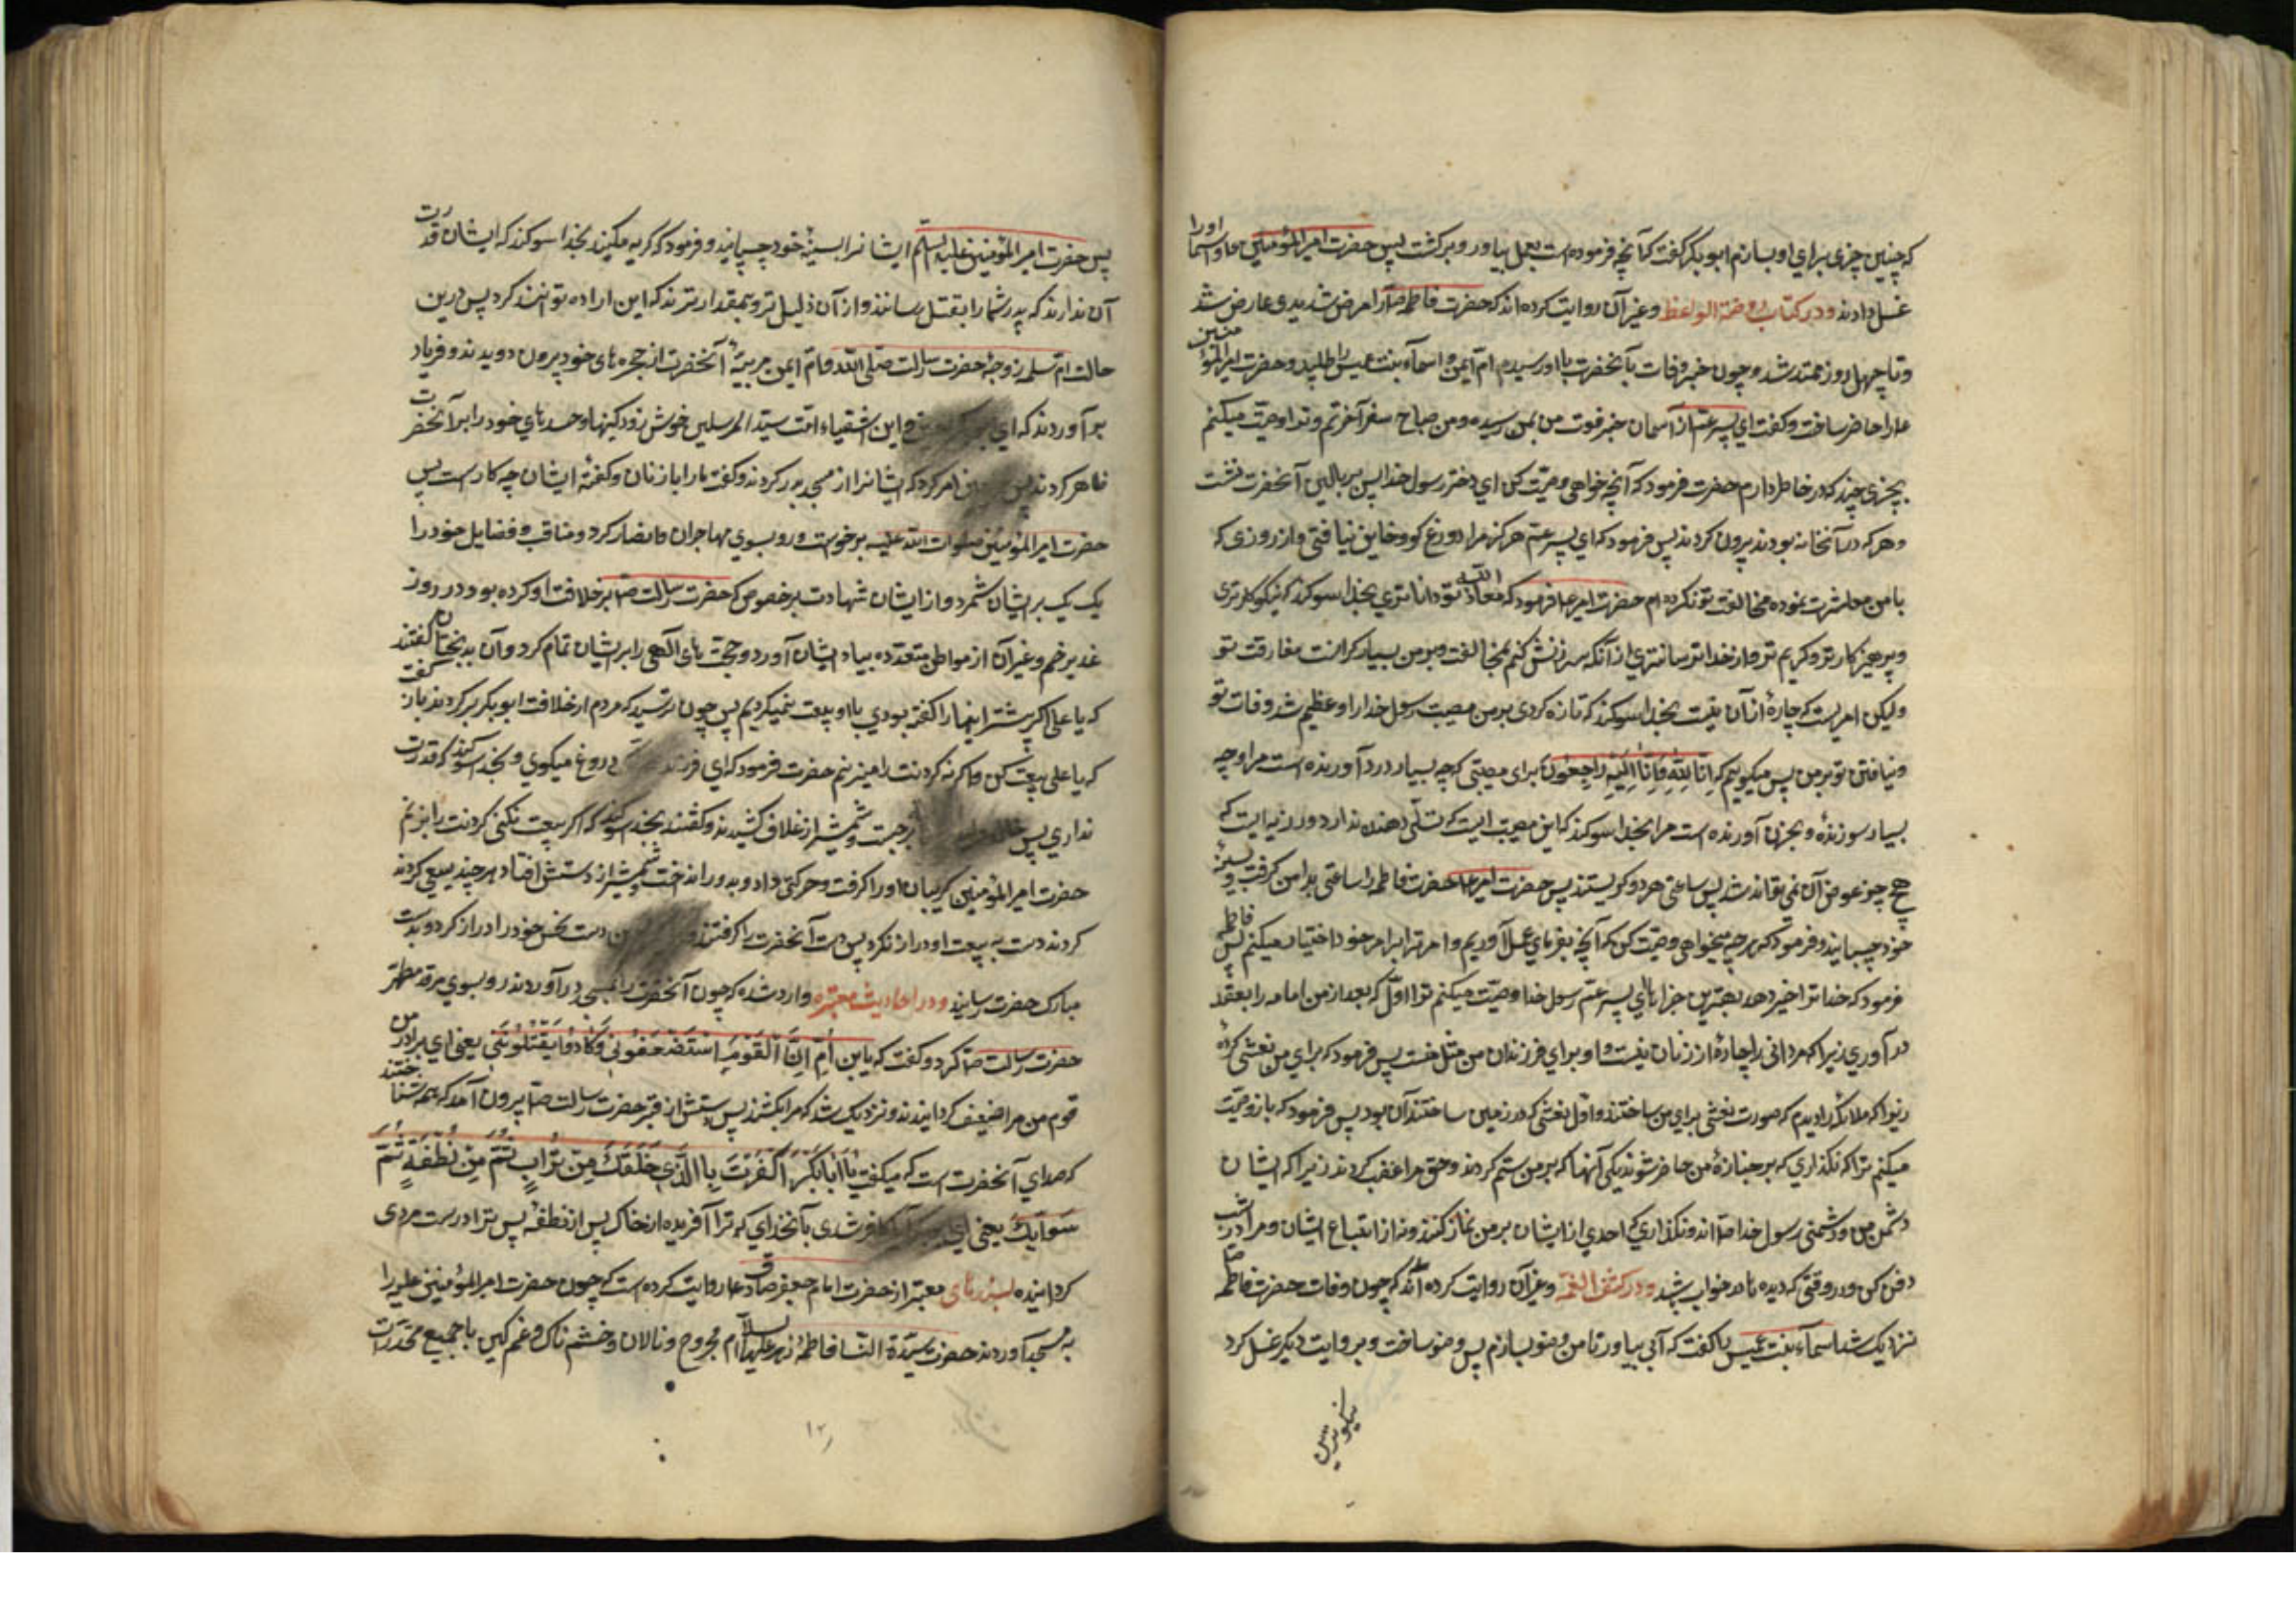 که چنین چیزی برای او بسازم ابوبکر گفت که آنچه فرموده است بعمل بیاور و برکشت پس حضرت امیر المؤمنین ع و اسما اورا
غسل دادند و در کتاب روضة الواعظ و غیر آن روایت کرده اند که حضرت فاطمه ص را مرض شدیدی عارض شد
و تا چهل روز ممتد شد و چون خبر وفات بآنحضرت با او رسید ام ایمن و اسمآء بنت عمیس را طلبید و حضرت امیر المؤمنین
ع را حاضر ساخت و گفت ای پسر عم از آسمان خبر فوت من بمن رسیده و من صباح سفر آخرتم و ترا وصیّت میکنم
بچیزی چند که در خاطر دارم حضرت فرمود که آنچه خواهی وصیّت کن ای دختر رسول خدا پس بر بالین آنحضرت نشست
و هر که در آنخانه بودند بیرون کردند پس فرمود که ای پسر عم هرکز مرا دروغ کو و خاین نیافتی و از روزی که
با من معاشرت نموده مخالفت تو نکرده ام حضرت امیر ع فرمود که معاذ الله تو داناتری بخدا سوکند که نیکوکارتری
و پرهیزکارتر و کریم تر و از خدا ترسانتری از آنکه سرزنش کنم بمخالفت و بر من بسیار کرانست مفارقت تو
ولیکن امریست که چارهٔ از آن نیست بخدا سوکند که تازه کردی بر من مصیبت رسول خدا را و عظیم شد وفات تو
و نیافتن تو بر من پس میکویم که اِنّا لِلّهِ وَاِنّا اِلَیْهِ راجِعُونَ برای مصیبتی که چه بسیار درد آورنده است مرا و چه
بسیار سوزنده و بحزن آورنده است مرا بخدا سوکند که این مصیبت ایست که تسلّی دهنده ندارد و رزیه ایست که
هیچ چیز عوض آن نمی تواند شد پس ساعتی هر دو کریستند پس حضرت امیر ع حضرت فاطمه را ساعتی بدامن کرفت و بسینهٔ
خود چسبانید و فرمود که هر چه میخواهی وصیّت کن که آنچه بفرمای عمل آوریم و امر ترا بر امر خود اختیار میکنم پس فاطمه
فرمود که خدا ترا خیر دهد بهترین جزاها ای پسر عم رسول خدا وصیّت میکنم ترا اوّل که بعد از من امامه را بعقد
در آوری زیرا که مردانی را چاره از زنان نیست و او برای فرزندان من مثل منست پس فرمود که برای من نعشی کرده
زیرا که ملائکه را دیدم که صورت نعشی برای من ساختند و اوّل نعشی که در زمین ساختند آن بود پس فرمود که باز وصیّت
میکنم ترا که نگذاری که بر جنازهٔ من حاضر شوند یکی آنها که بر من ستم کردند و حق مرا غصب کردند زیرا که ایشان
دشمن من و دشمنی رسول خدا ص اند و نگذاری که احدی از ایشان بر من نماز کنند و نه از اتباع ایشان و مرا در شب
دفن کن در وقتی که دیده ها در خواب باشد و در کشف الغمّه و غیر آن روایت کرده اند که چون وفات حضرت فاطمه ص
نزدیک شد اسمآء بنت عمیس را گفت که آبی بیاور تا من وضو بسازم پس وضو ساخت و بروایت دیکر غسل کرد
نیکوترین
پس حضرت امیر المؤمنین علیه السلم ایشانرا بسینهٔ خود چسپانید و فرمود که گریه مکنید بخدا سوکند که ایشان قدرت
آن ندارند که پدر شما را بقتل رسانند و از آن ذلیل تر و بیمقدارترند که این اراده توانند کرد پس درین
حالت ام سلمه زوجهٔ حضرت رسالت صلّی الله و امّ ایمن مربیهٔ آنحضرت از حجره های خود بیرون دویدند و فریاد
بر آوردند که ای این اشقیاء امّت سیّد المرسلین خوش زود کینها و حسدهای خود را بر آنحضرت
ظاهر کردند پس امر کرد که ایشانرا از مسجد بدر کردند و گفت ما را با زنان و گفتهٔ ایشان چه کار است پس
حضرت امیر المؤمنین صلوات الله علیه برخواست و رو بسوی مهاجران و انصار کرد و مناقب و فضایل خود را
یک یک بر ایشان شمرد و از ایشان شهادت بر خصوص که حضرت رسالت ص بر خلافت او کرده بود در روز
غدیر خم و غیر آن از مواطن متعدده بیاد ایشان آورد و حجّت های الهی را بر ایشان تمام کرد و آن بدبختان گفتند
که یا علی اکر پیشتر اینها را گفته بودی با او بیعت نمیکردیم پس چون ترسید که مردم از خلافت ابوبکر برکردند باز گفت
که یا علی بیعت کن و اکرنه کردنت را میزنم حضرت فرمود که ای فرزند دروغ میکوی و بخدا سوکند که قدرت
نداری پس برجست و شمشیر از غلاف کشیدند و گفتند بخدا سوکند که اکر بیعت نکنی کردنت را بزنم
حضرت امیر المؤمنین کریبان او را کرفت و حرکتی داد و بدور انداخت و شمشیر از دستش افتاد هر چند سعی کردند
کردند دست به بیعت او دراز نکرد پس دست آنحضرت را کرفتند و دست نحس خود را دراز کرد و بدست
مبارک حضرت رسانید و در احادیث معتبره وارد شده که چون آنحضرت را بمسجد درآوردند رو بسوی مرقد مطهر
حضرت رسالت ص کرد و گفت که یَابنَ اُمَّ اِنَّ الْقَوْمَ اسْتَضْعَفُونِی وَکَادُوا یَقْتُلُونَنِی یعنی ای برادر من
قوم من مرا ضعیف کردانیدند و نزدیک شد که مرا بکشند پس دستش از قبر حضرت رسالت ص بیرون آمد که همه شناختند
که صدای آنحضرت است که میگفت یَا اَبَابَکْرٍ اَکَفَرْتَ بِالَّذِی خَلَقَکَ مِنْ تُرابٍ ثُمَّ مِنْ نُطْفَةٍ ثُمَّ
سَوّیکَ یعنی ای کافر شدی بآنخدای که ترا آفریده از خاک پس از نطفه پس ترا درست مردی
کردانیده بسندهای معتبر از حضرت امام جعفر صادق ع روایت کرده است که چون حضرت امیر المؤمنین علی را
به مسجد آوردند حضرت سیّدة النسا فاطمهٔ زهر علیها السلام مجروح و نالان و خشم ناک و غم کین با جمیع مخدّرات